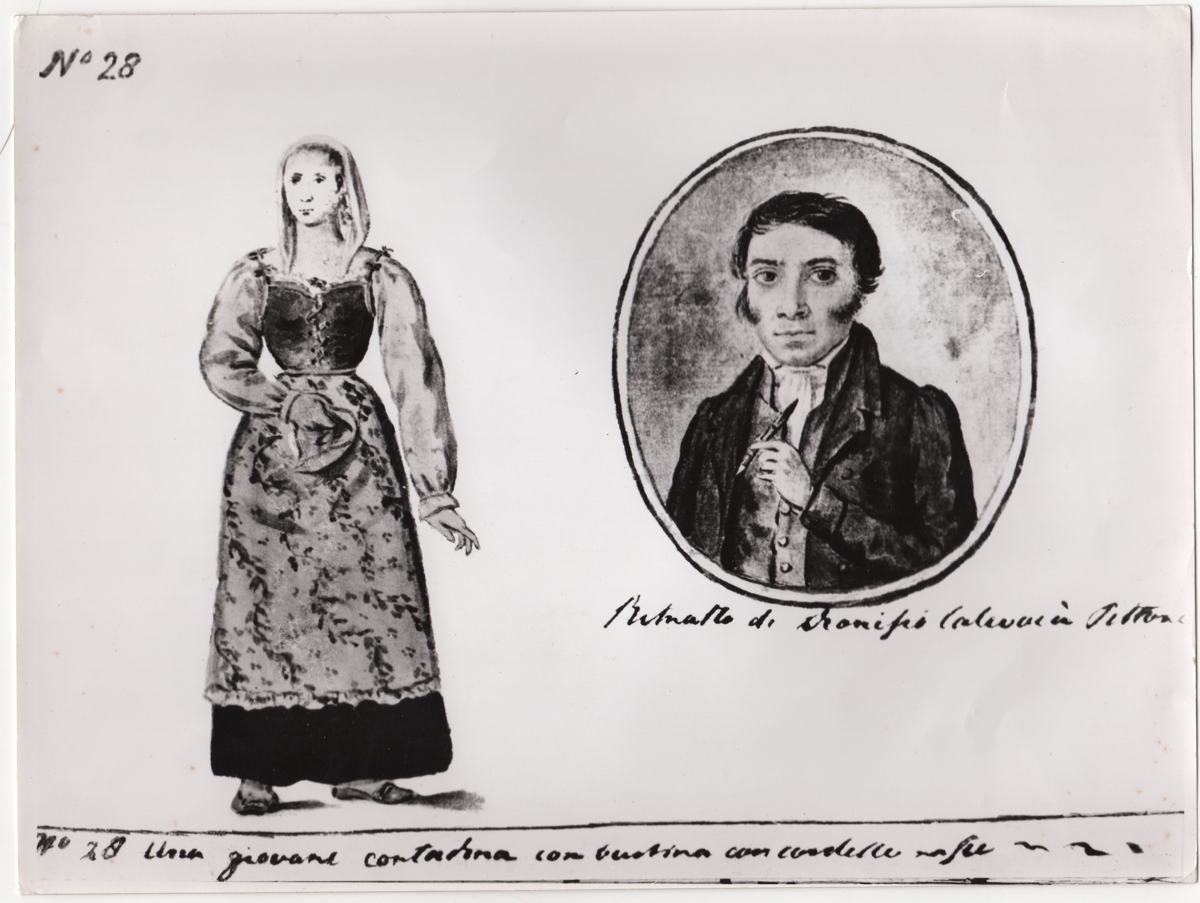 Nº 28
Ritratto di Dionisio Calavoià Pittore
Nº 28 Una giovane contadina con bustina con cordelle rosse